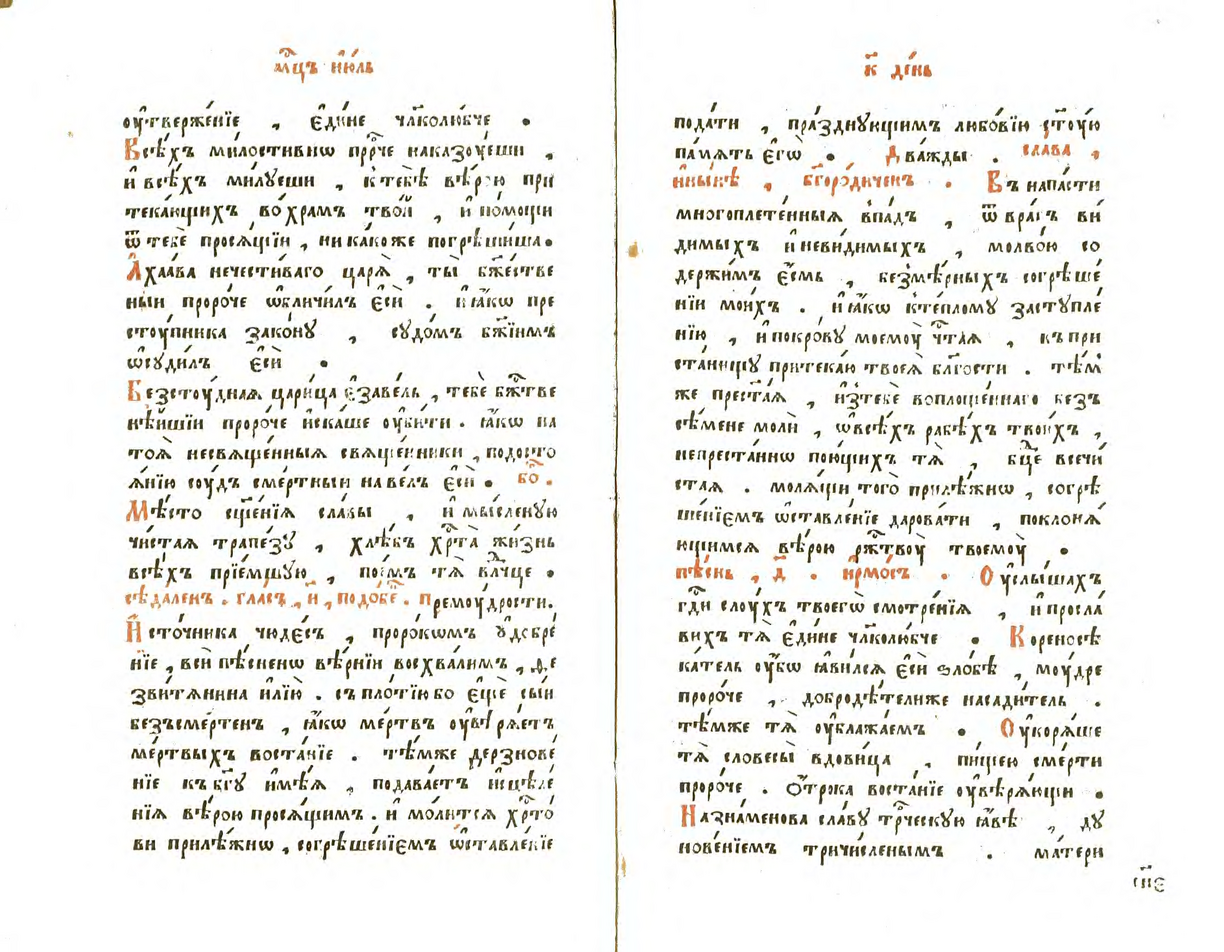 мцⷭ҇ъ і҆ю́ль
оу҆твержє́нїе , є҆ди́не чл҃колю́бче .
В сѣ́хъ ми́лостивнѡ прⷪ҇ро́че наказоу́еши ,
и҆ всѣ́хъ ми́лꙋеши , к тебѣ̀ вѣ́рою при
тека́ющихъ во хра́мъ тво́й , и҆ по́мощи
ѿ тебѐ прося́щїи , ника́коже погрѣши́ша .
А҆ хаа́ва нечести́ваго царѧ̀ , ты̀ бжⷭ҇тве
ныи проро́че ѡ҆бличи́лъ є҆сѝ . и҆ ꙗ҆́кѡ пре
стоу́пника зако́нꙋ , сꙋдо́мъ бж҃їимъ
ѡ҆сꙋди́лъ є҆сѝ .
Б езстоу́дная цари́ца є҆завє́ль , тебѐ бжⷭ҇тве
нѣ́йшїи проро́че и҆ска́ше оу҆би́ти . ꙗ҆́кѡ на
тоѧ̀ несвѧще́нныѧ свѧще́нники , по досто
ѧ́нїю соу́дъ сме́ртныи навє́лъ є҆сѝ . бо҃ .
М ѣ́сто сщ҃є́нїѧ сла́вы , и҆ мы́сленꙋю
чи́стаѧ трапє́зꙋ , хлѣ́бъ хрⷭ҇та̀ жи́знь
всѣ́хъ прїє́мшꙋю , пое́мъ тѧ̀ влⷣчце .
сѣда́ленъ . гла́съ , и҃ , подо́бе . премоу́дрости .
И҆ сто́чника чюде́съ , проро́кѡмъ оу҆добре́
нїе , всѝ пѣ́сненѡ вѣ́рнїи восхва́лимъ , ѳе
звитѧ́нина и҆лїю̀ . съ пло́тїю бо є҆щѐ сы́и
безъсме́ртенъ , ꙗ҆́кѡ ме́ртвъ оу҆вѣрѧ́етъ
ме́ртвыхъ воста́нїе . тѣ́мже дерзнове́
нїе къ бг҃ꙋ и҆мѣ́ѧ , подава́етъ и҆сцѣле́
нїѧ вѣ́рою прося́щимъ . и҆ мо́литсѧ хрⷭ҇то́
ви прилѣ́жнѡ , согрѣше́нїємъ ѡ҆ставле́нїе
к҃ де́нь
пода́ти , пра́зднꙋющимъ любо́вїю ст҃оую
па́мѧть є҆гѡ̀ . Д ва́жды . сла́ва ,
и҆ны́нѣ , бг҃оро́диченъ . В ъ напа́сти
многоплете́нныѧ впа́дъ , ѿ вра́гъ ви́
димыхъ и҆ неви́димыхъ , молво́ю со
держи́мъ є҆́смь , безмѣ́рныхъ согрѣше́
нїи мои́хъ . и҆ ꙗ҆́кѡ к те́плому застꙋпле́
нїю , и҆ покро́вꙋ моемоу̀ чⷭ҇таѧ , къ при
ста́нищꙋ притека́ю твоеѧ̀ бл҃гости . тѣ́м
же прест҃аѧ , и҆з тебѐ воплоще́ннаго безъ
сѣ́мене молѝ , ѡ҆ всѣ́хъ рабѣ́хъ твои́хъ ,
непреста́ннѡ пою́щихъ тѧ̀ , бцⷣе всечи́
стаѧ . молѧ́щи того̀ прилѣ́жнѡ , согрѣ
ше́нїємъ ѡ҆ставле́нїе дарова́ти , поклонѧ́
ющимсѧ вѣ́рою ржⷭ҇твоу̀ твоемоу̀ .
пѣ́снь , д҃ . і҆рмо́съ . О у҆слы́шахъ
гдⷭ҇и слоу́хъ твоегѡ̀ смотре́нїѧ , и҆ просла́
вихъ тѧ̀ є҆ди́не чл҃колю́бче . К ореносѣ
ка́тель оу҆́бѡ ꙗ҆ви́лсѧ є҆сѝ ѕло́бѣ , моу́дре
проро́че , добродѣ́телиже насади́тель .
тѣ́мже тѧ̀ оу҆блажа́емъ . О у҆корѧ́ше
тѧ̀ словесы̀ вдови́ца , пи́щею сме́рти
проро́че . ѻ҆́трока воста́нїе оу҆вѣрѧ́ющи .
Н азна́менова сла́вꙋ трⷪ҇ческꙋю ꙗ҆́вѣ , дꙋ
нове́нїємъ тричи́сленымъ . ма́тери
сп҃е